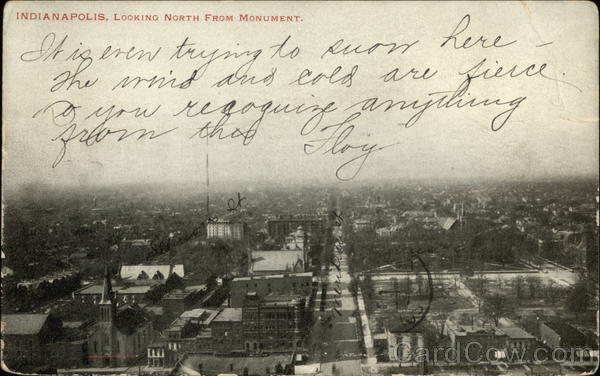 INDIANAPOLIS, LOOKING NORTH FROM MONUMENT.
It is even trying to snow here –
The wind and cold are fierce.
Do you recognize anything
from this Floy
CardCow.com